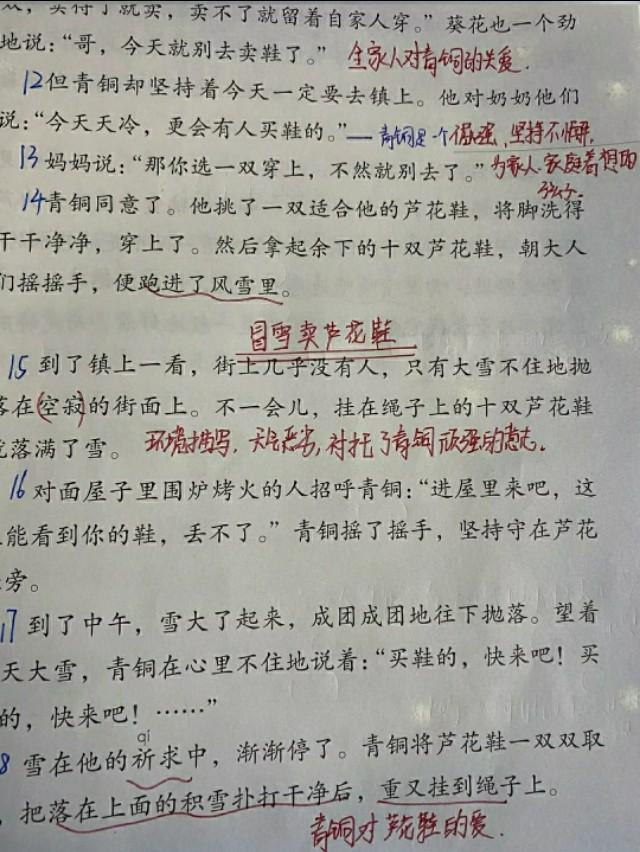 卖得了就买，卖不了就留着自家人穿。”葵花也一个劲
地说：“哥，今天就别去卖鞋了。” 全家人对青铜的关爱.
12但青铜却坚持着今天一定要去镇上。他对奶奶他们
说：“今天天冷，更会有人买鞋的。”——青铜是一个倔强，坚持不懈，
13妈妈说：“那你选一双穿上，不然就别去了。” 为家人、家庭着想的
孩子.
14青铜同意了。他挑了一双适合他的芦花鞋，将脚洗得
干干净净，穿上了。然后拿起余下的十双芦花鞋，朝大人
们摇摇手，便跑进了风雪里。
冒雪卖芦花鞋
15到了镇上一看，街上几乎没有人，只有大雪不住地抛
落在(空寂)的街面上。不一会儿，挂在绳子上的十双芦花鞋
就落满了雪。 环境描写，天气恶劣，衬托了青铜顽强的意志.
16对面屋子里围炉烤火的人招呼青铜：“进屋里来吧，这
能看到你的鞋，丢不了。”青铜摇了摇手，坚持守在芦花
旁。
17到了中午，雪大了起来，成团成团地往下抛落。望着
天大雪，青铜在心里不住地说着：“买鞋的，快来吧！买
的，快来吧！……”
qí
8雪在他的祈求中，渐渐停了。青铜将芦花鞋一双双取
，把落在上面的积雪扑打干净后，重又挂到绳子上。
青铜对芦花鞋的爱.